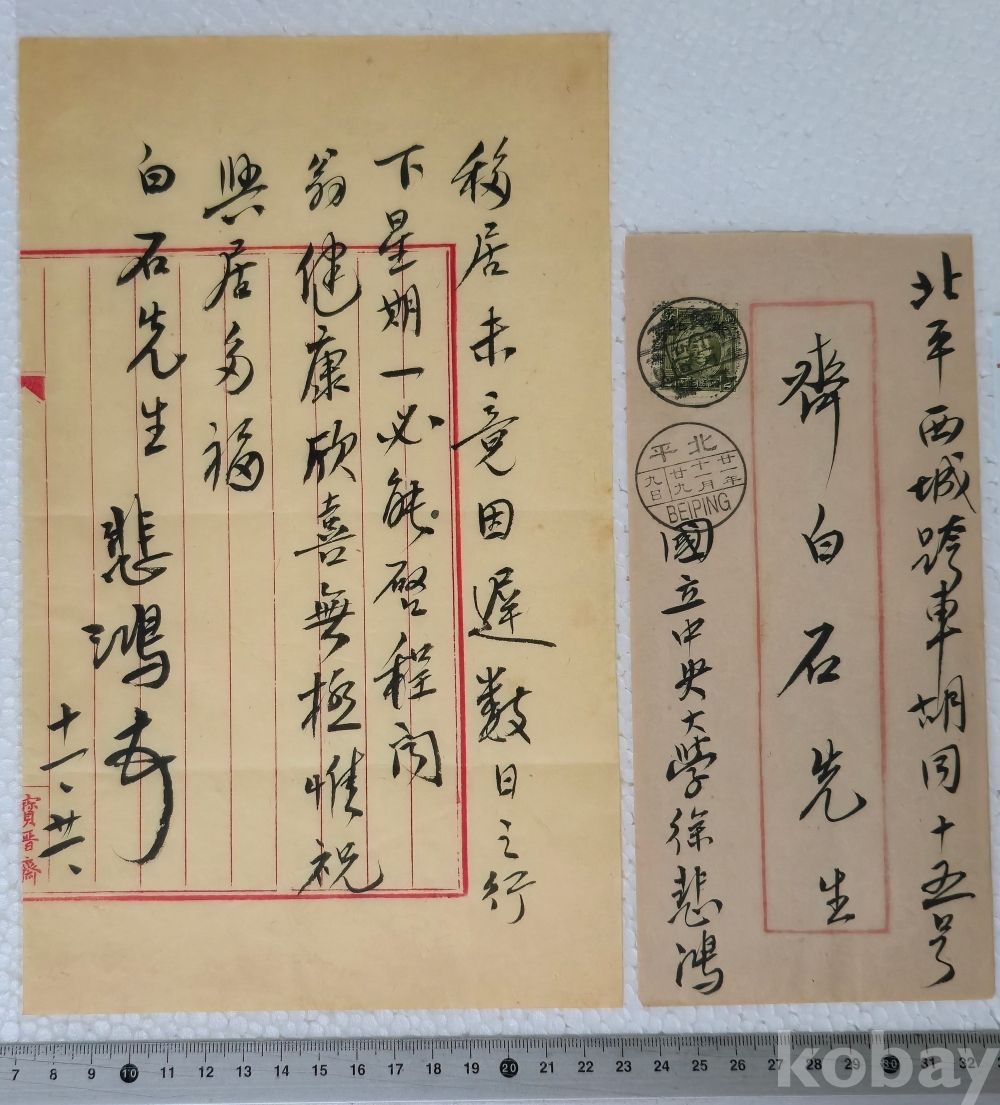 移居未竟因遲數日之行
下星期一必能啓程閱
翁健康欣喜無極惟祝
興居多福
白石先生
悲鴻
十一、廿一、
寶晉齋
北平西城跨車胡同十五号
齊白石先生
國立中央大学徐悲鴻
北平
廿一年
十一月
廿九
九日
BEIPING
7 8 9 10 11 12 13 14 15 16 17 18 19 20 21 22 23 24 25 26 27 28 29 30 31 32
kobay